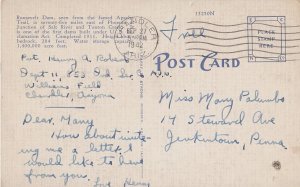 Roosevelt Dam, seen from the famed Apache
Trail, is seventy-five miles east of Phoenix at
Junction of Salt River and Tonto Creek. It
is one of the first dams built under U. S.
Act. Completed 1911. Height
bedrock, 284 feet. Water storage
1,400,000 acre feet.
1942
Free
15250N
PLACE
STAMP
HERE
POST CARD
Pvt. Henry A. Robert
Dept 11 853 Ord. Co.
Williams Field
Chandler, Arizona
Dear, Mary
How about write-
ing me a letter, I
would like to have
from you.
Love Henry
Miss Mary Palumbo
14 Steward Ave
Jenkintown, Penna.